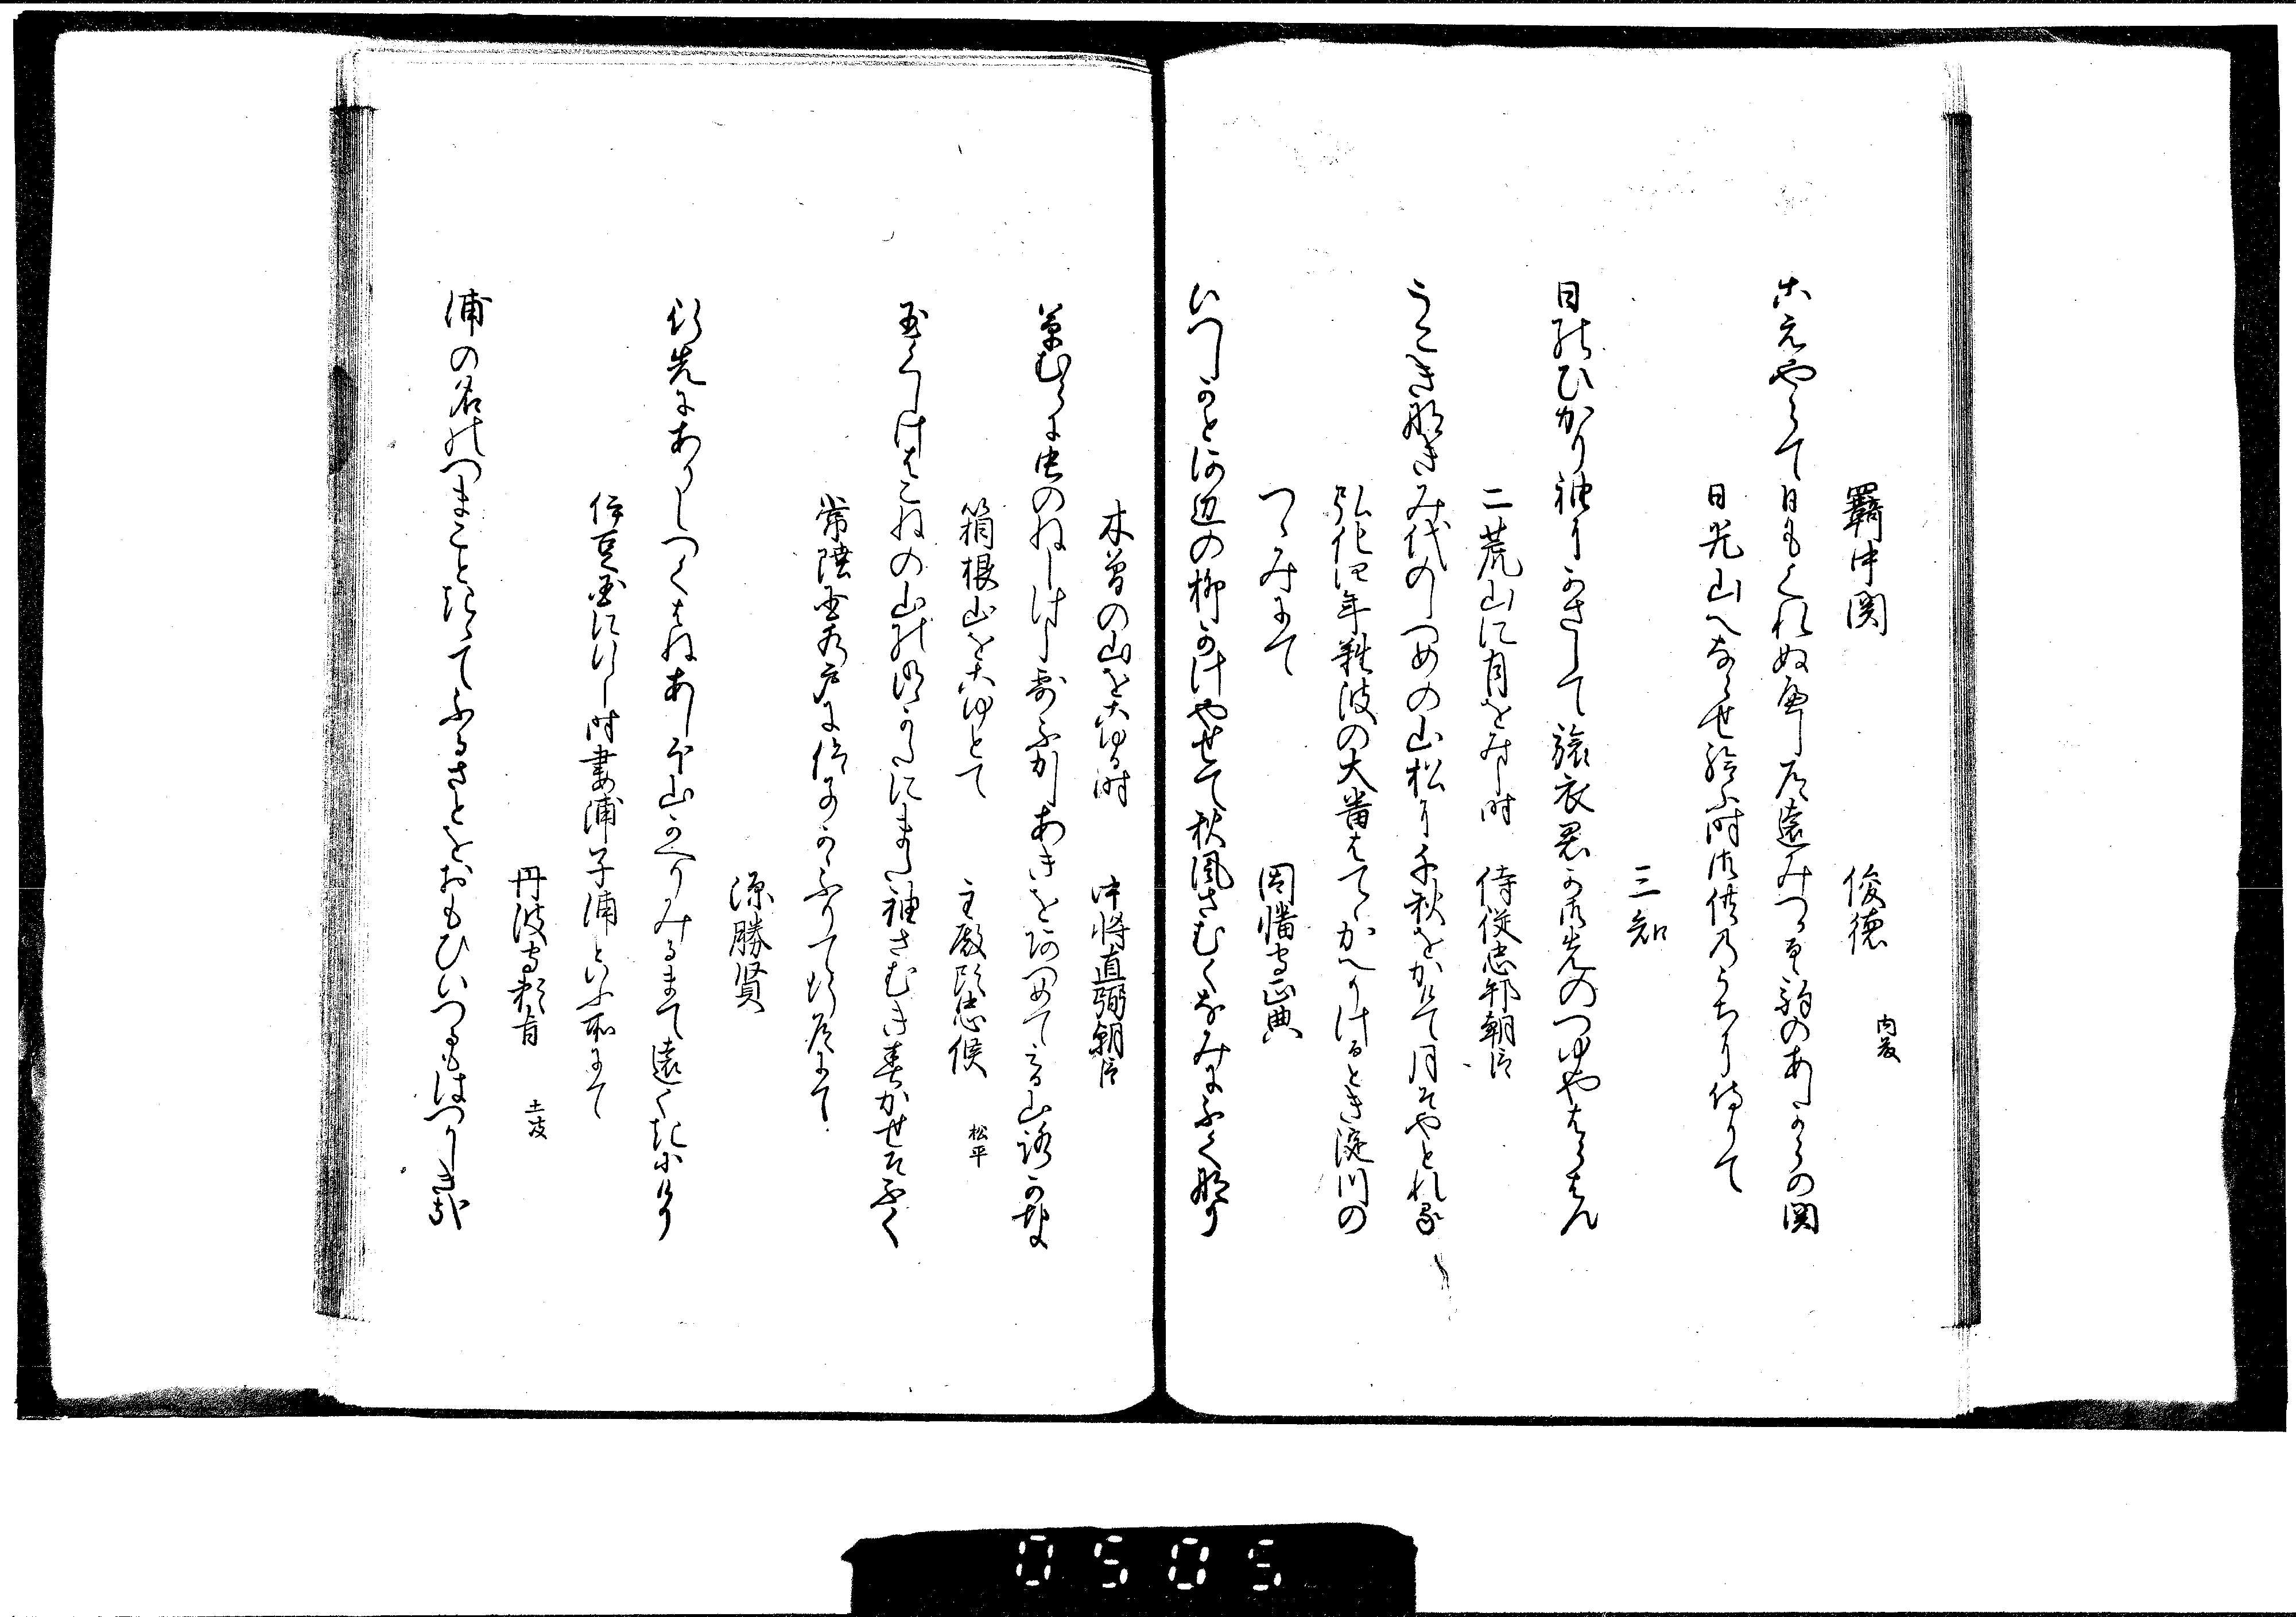 羇中関　俊徳　内藤
こえやらて日もくれぬへし尾遠みつかるゝ駒のあしからの関
日光山へならせ給ふ時御供のうちに侍りて
三知
日のひかり袖にかさして旅衣君か御先のつゆやはらはん
二荒山に月をみし時　侍従忠邦朝臣
うこきなきみ代のしつめの山松に千秋をかけて月そやとれる
弘化四年難波の大番はてゝかへりけるとき淀川の
つゝみにて　因幡守正典
いつしかと河辺の柳かけやせて秋風さむくなみにふくなり
木曽の山をこゆる時　中将直弼朝臣
草むらに虫のねしけし露ふかしあきをあつめてける山路かな
箱根山をこゆとて　主殿頭忠侯　松平
玉くしけはこねの山の明かたにまた袖さむき春かせそふく
常陸国水戸に侍るかゝふりて行道にて
源勝賢
行先にありしつくはねあし小山かへりみるまて遠くきにけり
伊豆国に行し時妻浦子浦といふ所にて
丹波守頼旨　土岐
浦の名のつまことにてふるさとをおもひいつるもはつかしき哉
0505